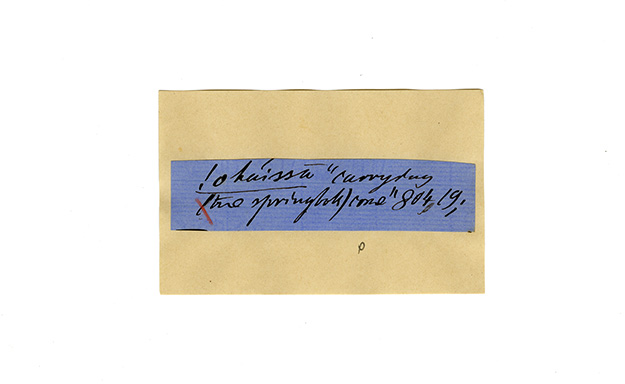 !o háissã "carrying
(the springbok) come" 804, 19,